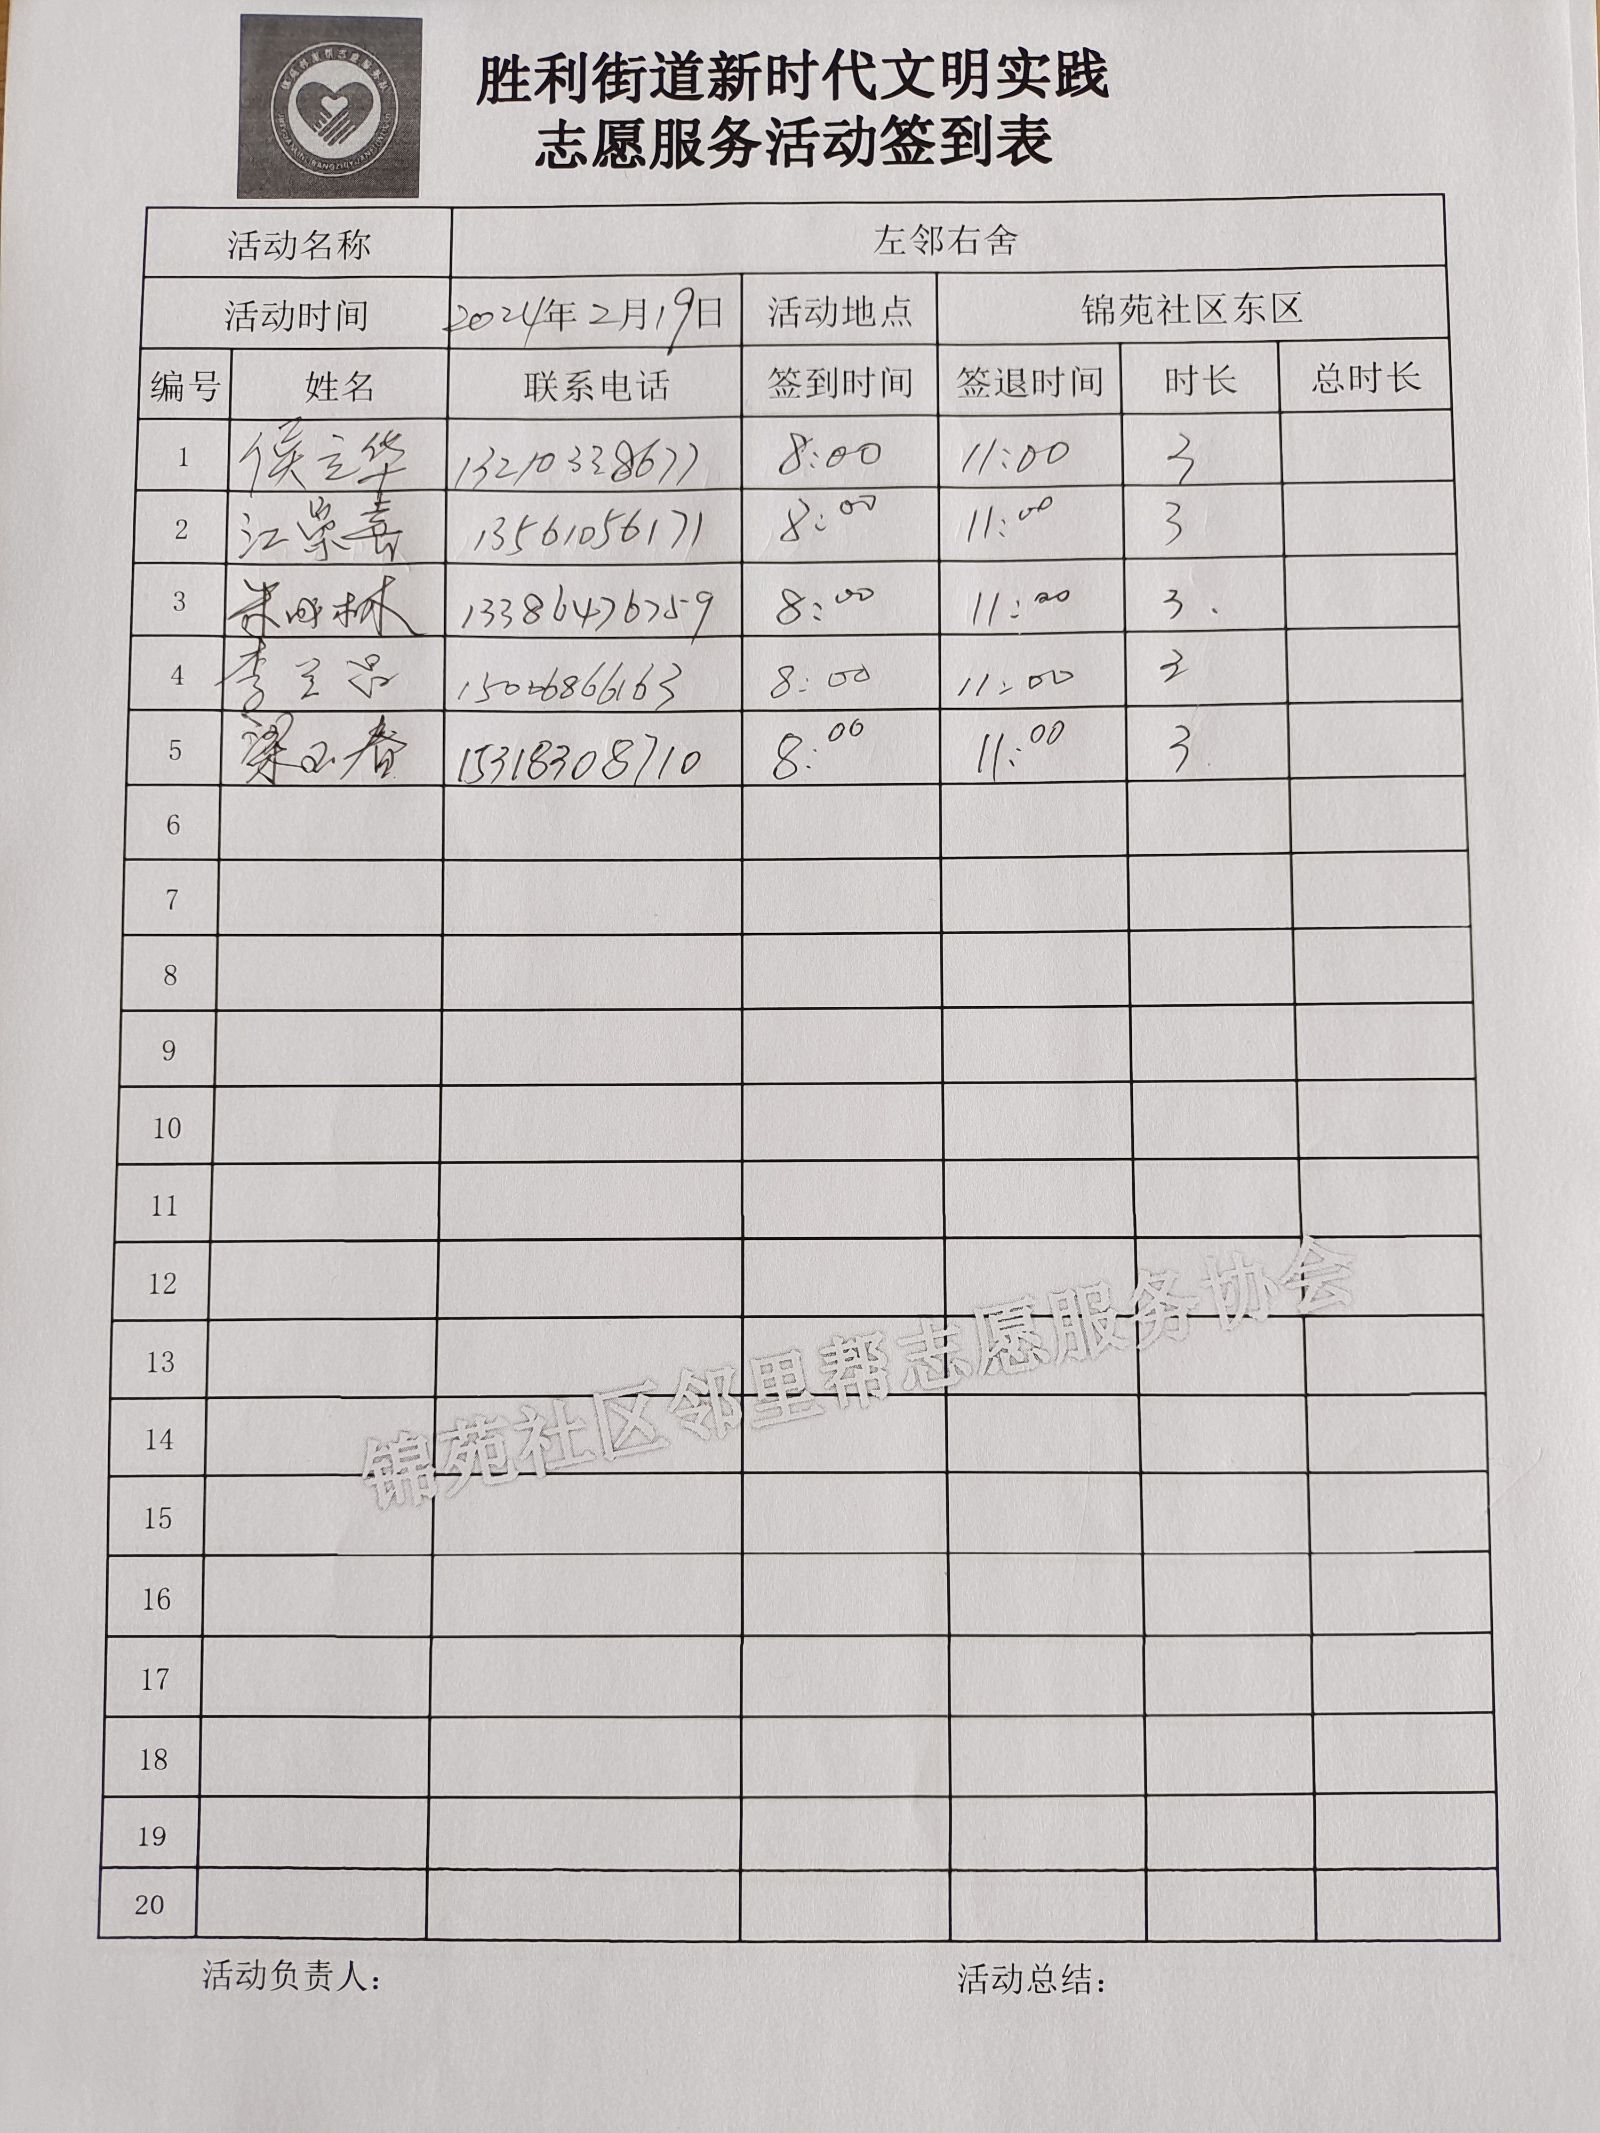 胜利街道新时代文明实践
志愿服务活动签到表
活动名称 左邻右舍
活动时间 2024年2月19日 活动地点 锦苑社区东区
编号 姓名 联系电话 签到时间 签退时间 时长 总时长
1 侯立华 13210338677 8:00 11:00 3
2 江荣喜 13561056171 8:00 11:00 3
3 13386476759 8:00 11:00 3.
4 李兰品 15026866163 8:00 11:00 3
5 梁玉春 15318308710 8:00 11:00 3
6
7
8
9
10
11
12
13
14
15
16
17
18
19
20
锦苑社区邻里帮志愿服务协会
活动负责人: 活动总结: